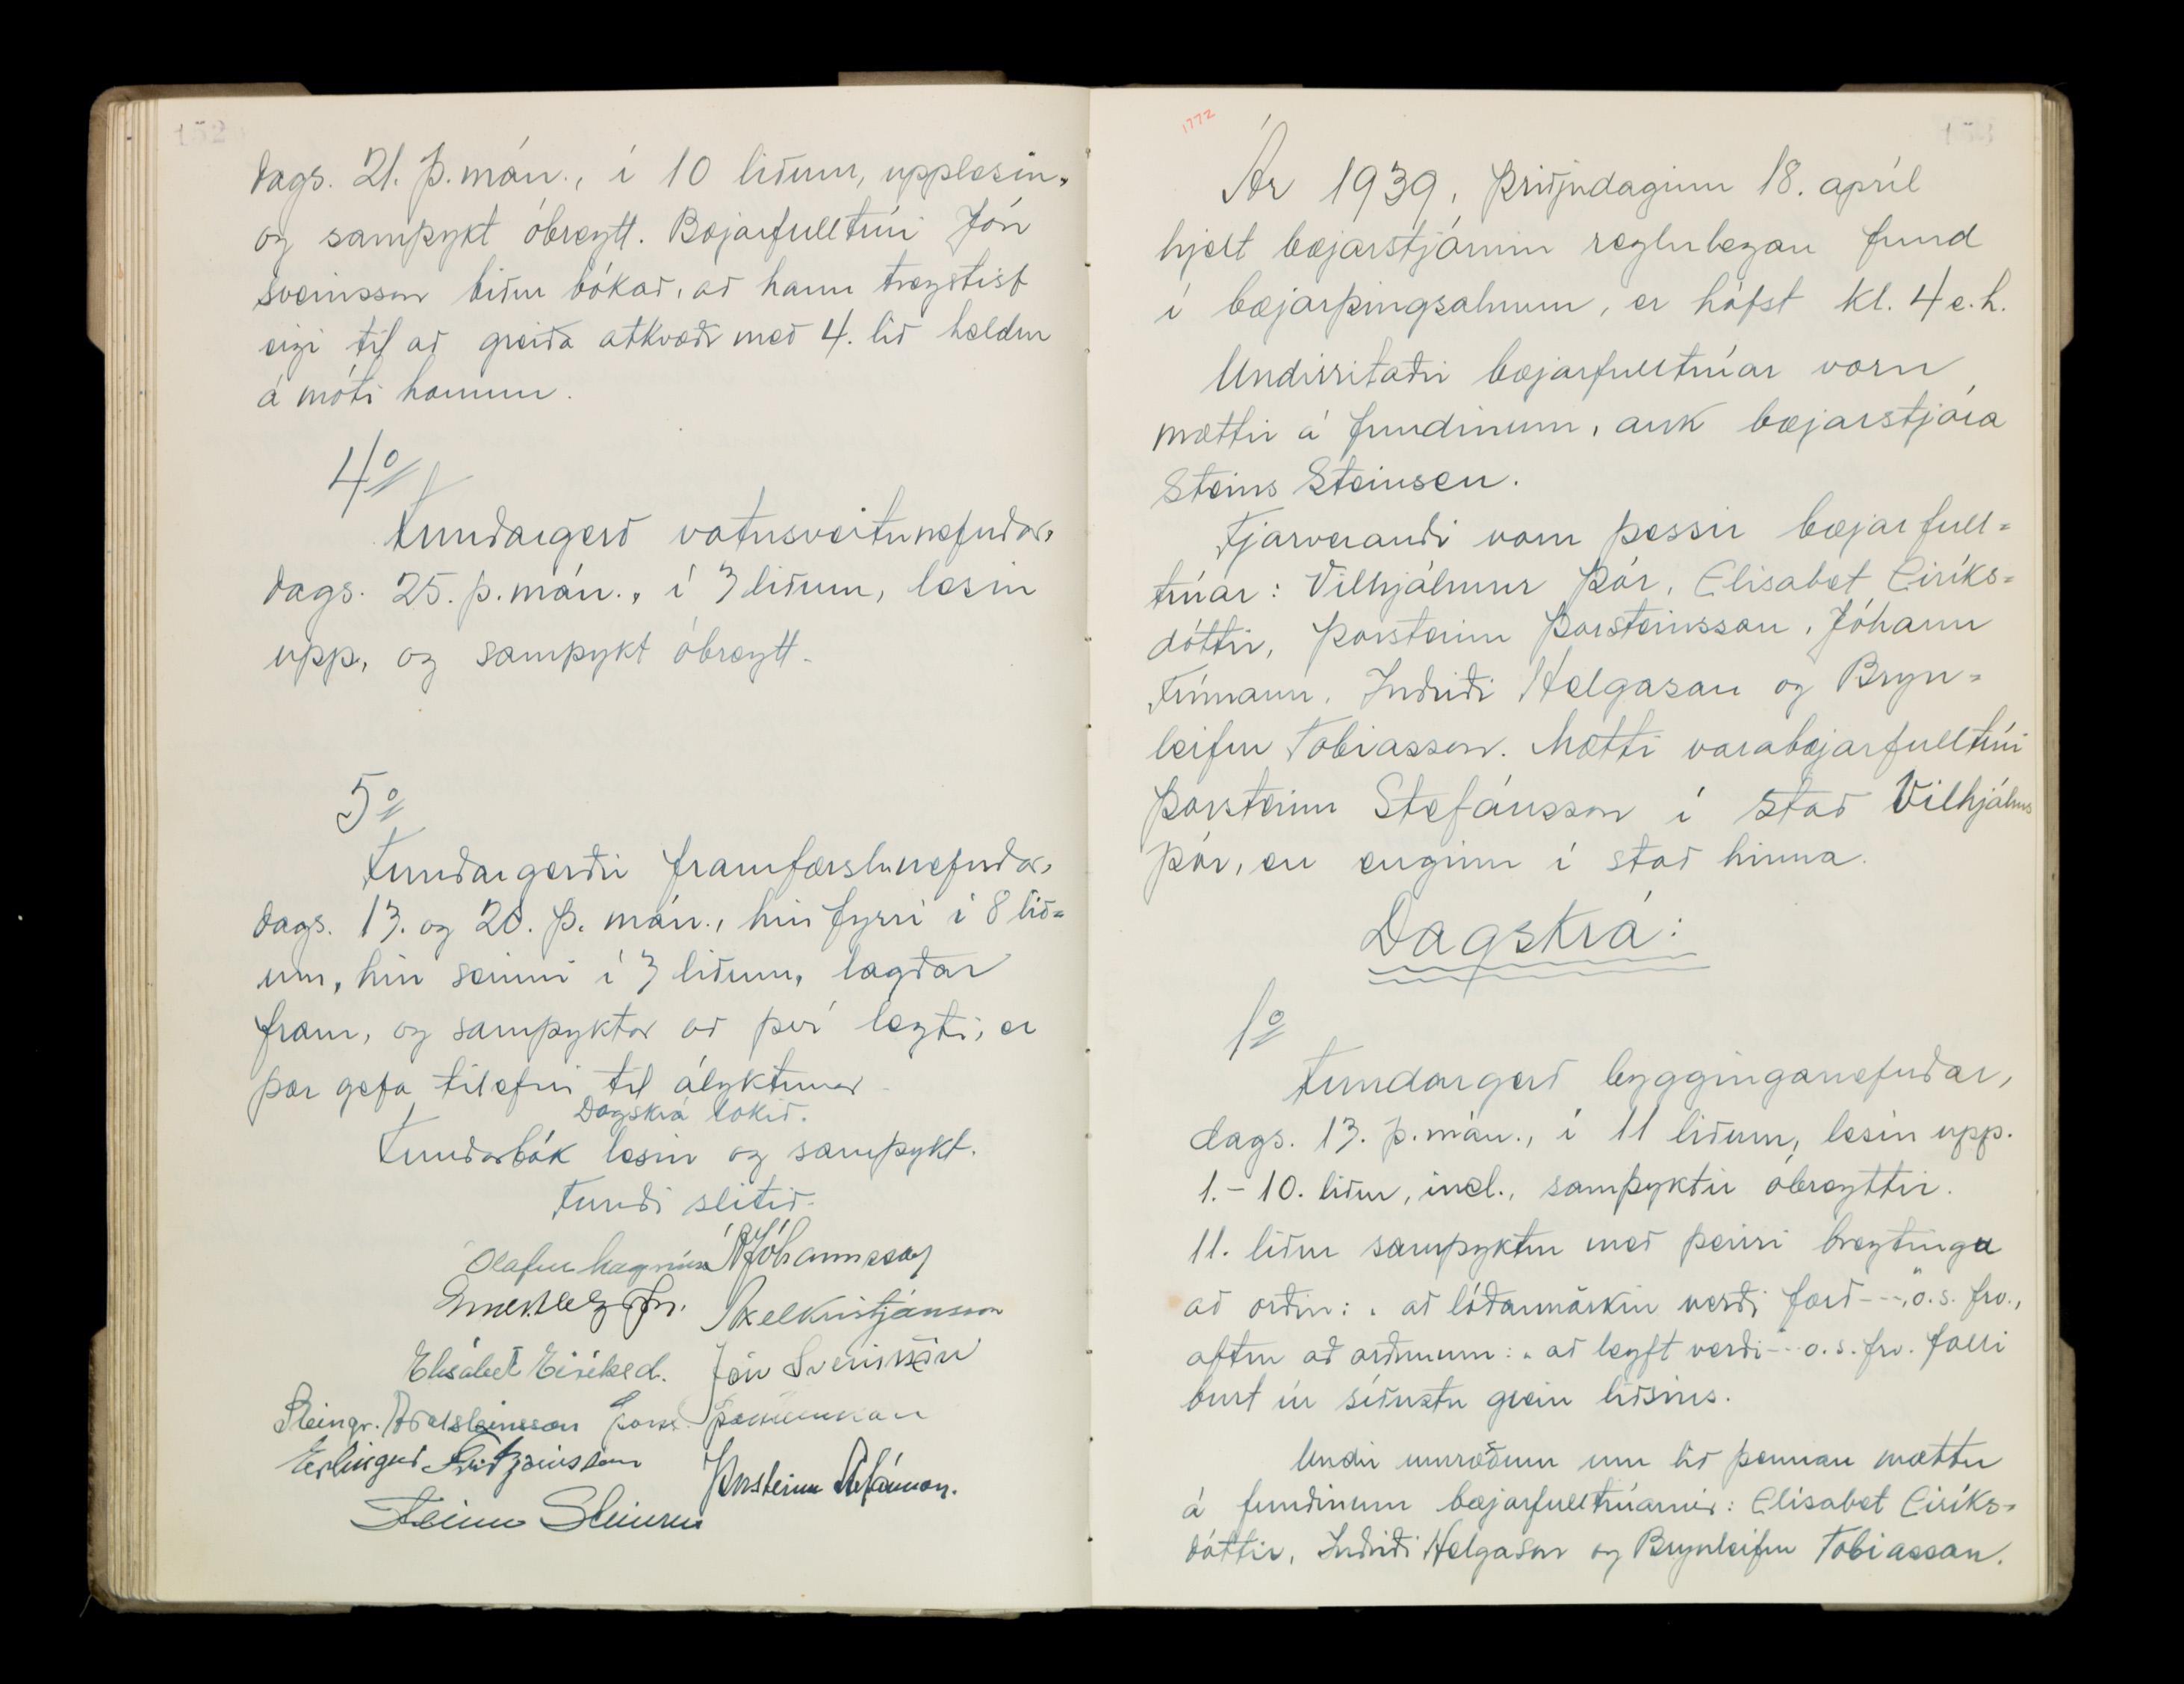 152
dags. 21. þ. mán., í 10 liðum, upplesin,
og samþykt óbreytt. Bæjarfulltrúi Jón
Sveinsson biður bókað, að hann treystist
eigi til að greiða atkvæði með 4. lið heldur
á móti honum.
4o
Fundargerð vatnsveitunefndar,
dags. 25. þ. mán., í 3 liðum, lesin
upp, og samþykt óbreytt.
5o
Fundargerðir framfærslunefndar,
dags. 13. og 20. þ. mán., hin fyrri í 8 lið=
um, hin seinni í 3 liðum, lagðar
fram, og samþyktar að því leyti, er
þær gefa tilefni til ályktunar.
Dagskrá lokið.
Fundarbók lesin og samþykt.
Fundi slitið.
Ólafur Magnússon Jóhannesson
Axel Kristjánsson
Elísabet Eiríksd. Jón Sveinsson
Steingr. Aðalsteinsson Þorst. Þorsteinsson
Erlingur Friðjónsson
Þorsteinn Stefánsson.
Steinn Steinsen
1772
153
Ár 1939, þriðjudaginn 18. apríl
hjelt bæjarstjórnin reglulegan fund
í bæjarþingsalnum, er hófst kl. 4 e.h.
Undirritaðir bæjarfulltrúar voru
mættir á fundinum, auk bæjarstjóra
Steins Steinsen.
Fjarverandi voru þessir bæjarfull=
trúar: Vilhjálmur Þór, Elísabet Eiríks=
dóttir, Þorsteinn Þorsteinsson, Jóhann
Frímann, Indriði Helgason og Bryn=
leifur Tobiasson. Mætti varabæjarfulltrúi
Þorsteinn Stefánsson í stað Vilhjálms
Þór, en enginn í stað hinna.
Dagskrá:
1o
Fundargerð bygginganefndar,
dags. 13. þ. mán., í 11 liðum, lesin upp.
1. - 10. liður, incl., samþyktir óbreyttir.
11. liður samþyktur með þeirri breytingu
að orðin: „að lóðarmörkin verði færð---" o.s. frv.,
aftur að orðunum: „að leyft verði--" o.s. frv. falli
burt úr síðustu grein liðsins.
Undir umræðum um lið þennan mættu
á fundinum bæjarfulltrúarnir: Elísabet Eiríks=
dóttir, Indriði Helgason og Brynleifur Tobiasson.